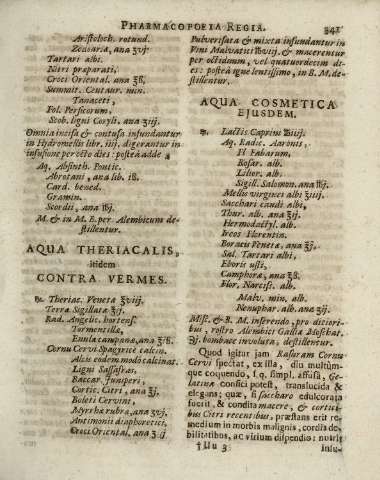 PHARMACOPOEIA REGIA. 341
Aristoloch. rotund.
Zedoariæ, ana ʒvj.
Tartari albi.
Nitri præparati.
Croci Oriental. ana ʒß.
Summit. Centaur. min.
Tanaceti,
Fol. Persicorum,
Scob. ligni Coryli ana ʒiij.
Omnia incisa & contusa infundantur
in Hydromellis libr. iiij. digerantur in
infusione per octo dies: postea adde
Aq. Absinth. Pontic.
Abrotani, ana lib. iß.
Card. bened.
Gramin.
Scordii, ana ℔j.
M. & in M.B. per Alembicum de-
stillentur.
AQUA THERIACALIS,
itidem
CONTRA VERMES.
℞. Theriac. Venetæ ℥viij.
Terræ Sigillatæ ℥j.
Rad. Angelic. hortens.
Tormentillæ,
Enulæ campanæ, ana ℥ß.
Cornu Cervi Spagiricè calcin.
Aliis eodem modo calcinat.
Ligni Sassafras,
Baccar. Juniperi,
Cortic. Citri, ana ʒj.
Boleti Cervini,
Myrrhæ rubræ, ana ʒvj.
Antimonii diaphoretici,
Croci Oriental. ana ʒij
Pulverisata & mixta infundantur in
Vini Malvatici ℔viij & macerentur
per octiduum, vel quatuordecim di-
es: postea igne lentissimo, in B. M. de-
stillentur.
AQUA COSMETICA
EJUSDEM.
℞. Lactis Caprini ℔iiij.
Aq. Radic. Aaronis,
Fl Fabarum,
Rosar. alb.
Lilior. alb.
Sigill. Salomon. ana ℔j.
Mellis virginei albi ℥iiij.
Sacchari candi albi,
Thur. alb. ana ℥ij.
Hermodactyl. alb.
Ireos Florentin.
Boracis Venetæ, ana ℥j.
Sal. Tartari albi,
Eboris usti,
Camphoræ, ana ℥ß.
Flor. Narciss. alb.
Malv. min. alb.
Nenuphar. alb. ana ʒij.
Misc. & B. M. inserendo, pro ditiori-
bus, rostro Alembici Galliæ Moschat.
ʒj. bombace involuta, destillentur.
Quod igitur jam Rasuram Cornu
Cervi spectat, ex illa, diu multùm-
que coquendo, f. q. simpl. affusâ, Ge-
latina confici potest, translucida &
elegans; quæ, si saccharo edulcorata
fuerit, & condita macere, & cortici-
bus Citri recentibus, præstans erit re-
medium in morbis malignis, cordis de-
bilitatibus, ac virium dispendio: nutrit
†Uu 3 insu-